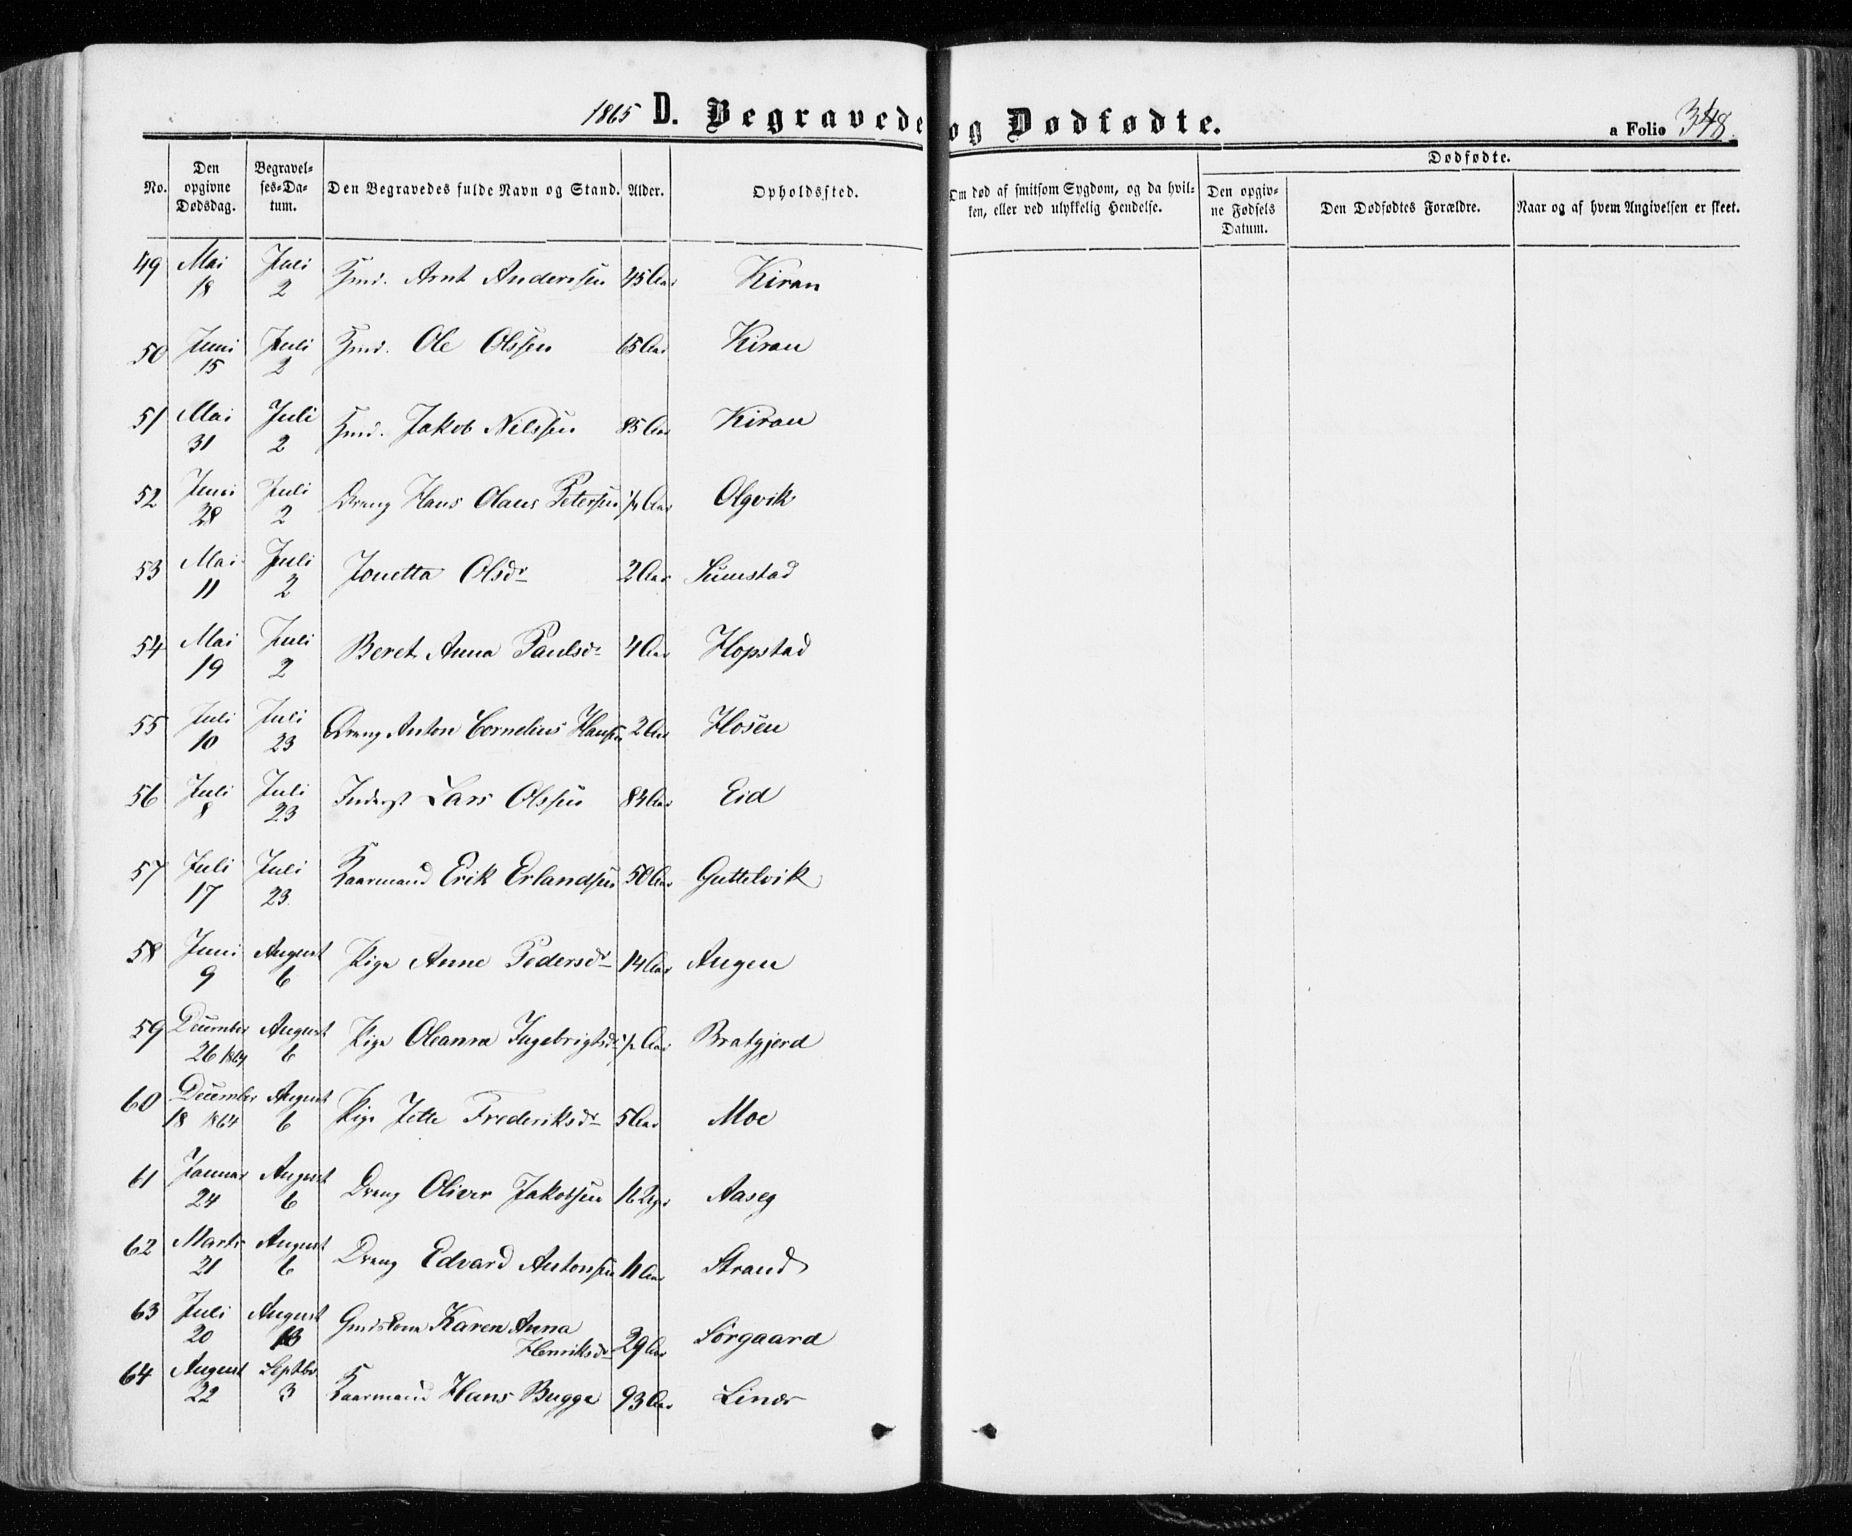 1865 D. Begravede og Dødfødte. a Folio 348.
No. Den opgivne Dødsdag. Begravelses-Datum. Den Begravedes fulde Navn og Stand. Alder. Opholdssted. Om død af smitsom Sygdom, og da hvilken, eller ved ulykkelig Hendelse. Dødfødte. Den opgivne Fødsels Datum. Den Dødfødtes Forældre. Naar og af hvem Angivelsen er skeet.
49 Mai 18 Juli 2 Gmd. Arnt Anderssen 45 Aar Kiran
50 Juni 15 Juli 2 Gmd. Ole Olssen 65 Aar Kiran
51 Mai 31 Juli 2 Gmd. Jakob Nilssen 85 Aar Kiran
52 Juni 28 Juli 2 Dreng Hans Olaus Petersen 1/4 Aar Olgvik
53 Mai 11 Juli 2 Jonetta Olsdr 2 Aar Sumstad
54 Mai 19 Juli 2 Beret Anna Paulsdr 4 Aar Hopstad
55 Juli 10 Juli 23 Dreng Anton Cornelius Hansen 2 Aar Hosen
56 Juli 8 Juli 23 Inderst Lars Olssen 84 Aar Eid
57 Juli 17 Juli 23 Kaarmand Erik Erlandsen 50 Aar Guttelvik
58 Juni 9 August 6 Pige Anne Pedersdr 14 Aar Angen
59 December 26 1864 August 6 Pige Oleanna Ingebrigtsdr 1/2 Aar Bratgjerd
60 December 18 1864 August 6 Pige Jette Frederiksdr 5 Aar Moe
61 Januar 24 August 6 Dreng Oliver Jakobsen 16 Dge Aaseg
62 Marts 21 August 6 Dreng Edvard Antonsen 11 Aar Strand
63 Juli 20 August 13 Gmdskone Karen Anna Henriksdr 29 Aar Sørgaard
64 August 22 Septbr 3 Kaarmand Hans Bugge 93 Aar Linær